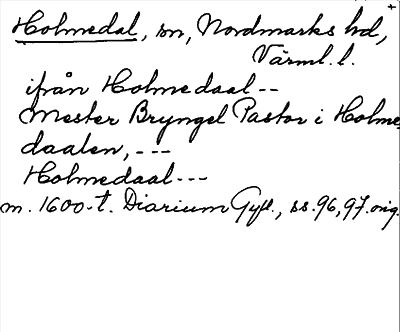 Holmedal, sn, Nordmarks hd,
Värml. l.
ifrån Holmedaal --
Mester Bryngel Pastor i Holme-
daalen, ---
Holmedaal ---
m. 1600-t. Diarium Gyll., ss. 96, 97. orig.